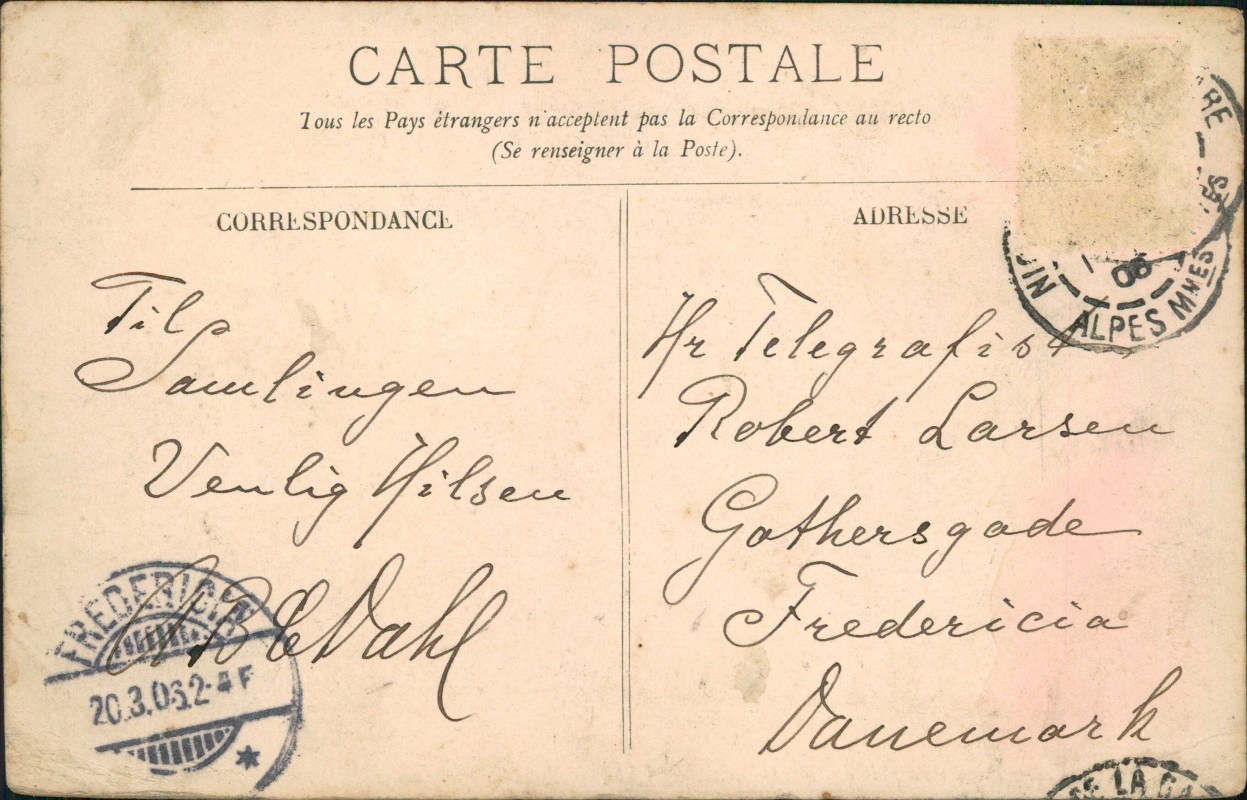 CARTE POSTALE
Tous les Pays étrangers n'acceptent pas la Correspondance au recto
(Se renseigner à la Poste).
CORRESPONDANCE
Til
Samlingen
Venlig Hilsen
Dahl
FREDERICIA
20.3.06.2-4 F
ADRESSE
Hr Telegrafist
Robert Larsen
Gothersgade
Fredericia
Danemark
06
ALPES MMES
DE LA GA